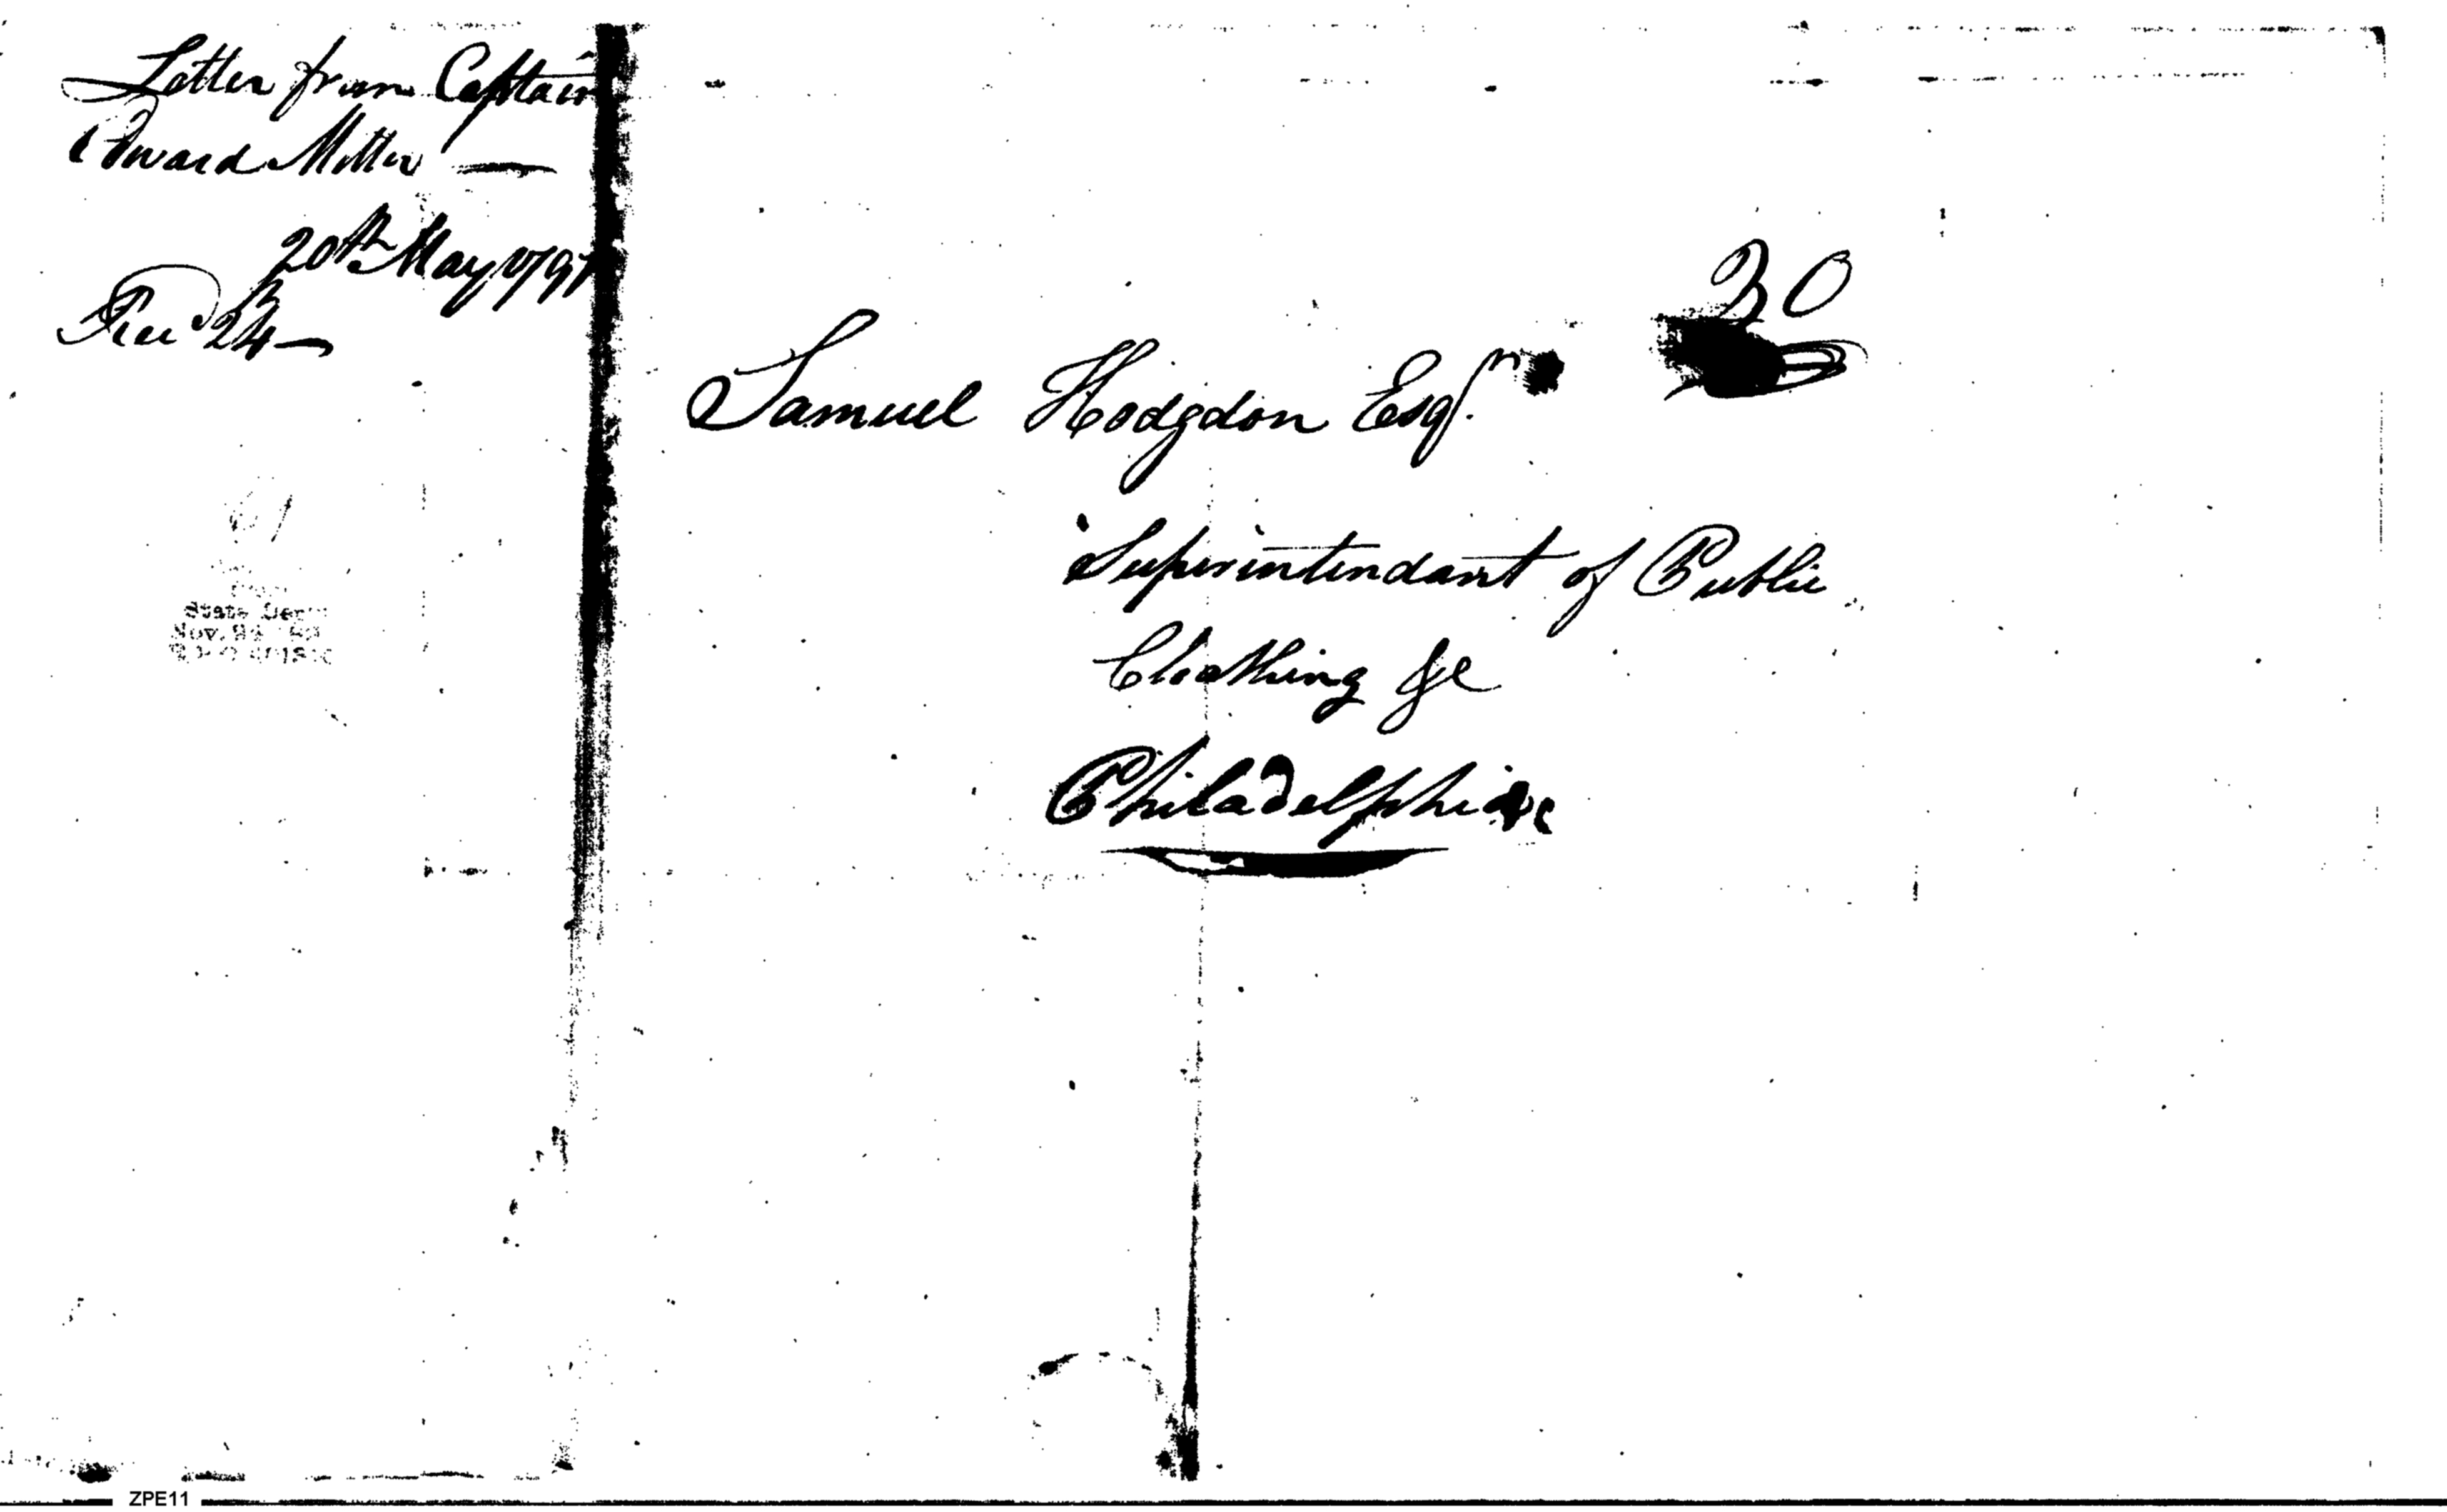 Letter from Captain
Edward Miller —
20th May 1797
Recd 24 —
30
Samuel Hodgdon Esqr
Superintendant of Public
Cloathing &c
Philadelphia
State Dept
Nov.
ZPE11